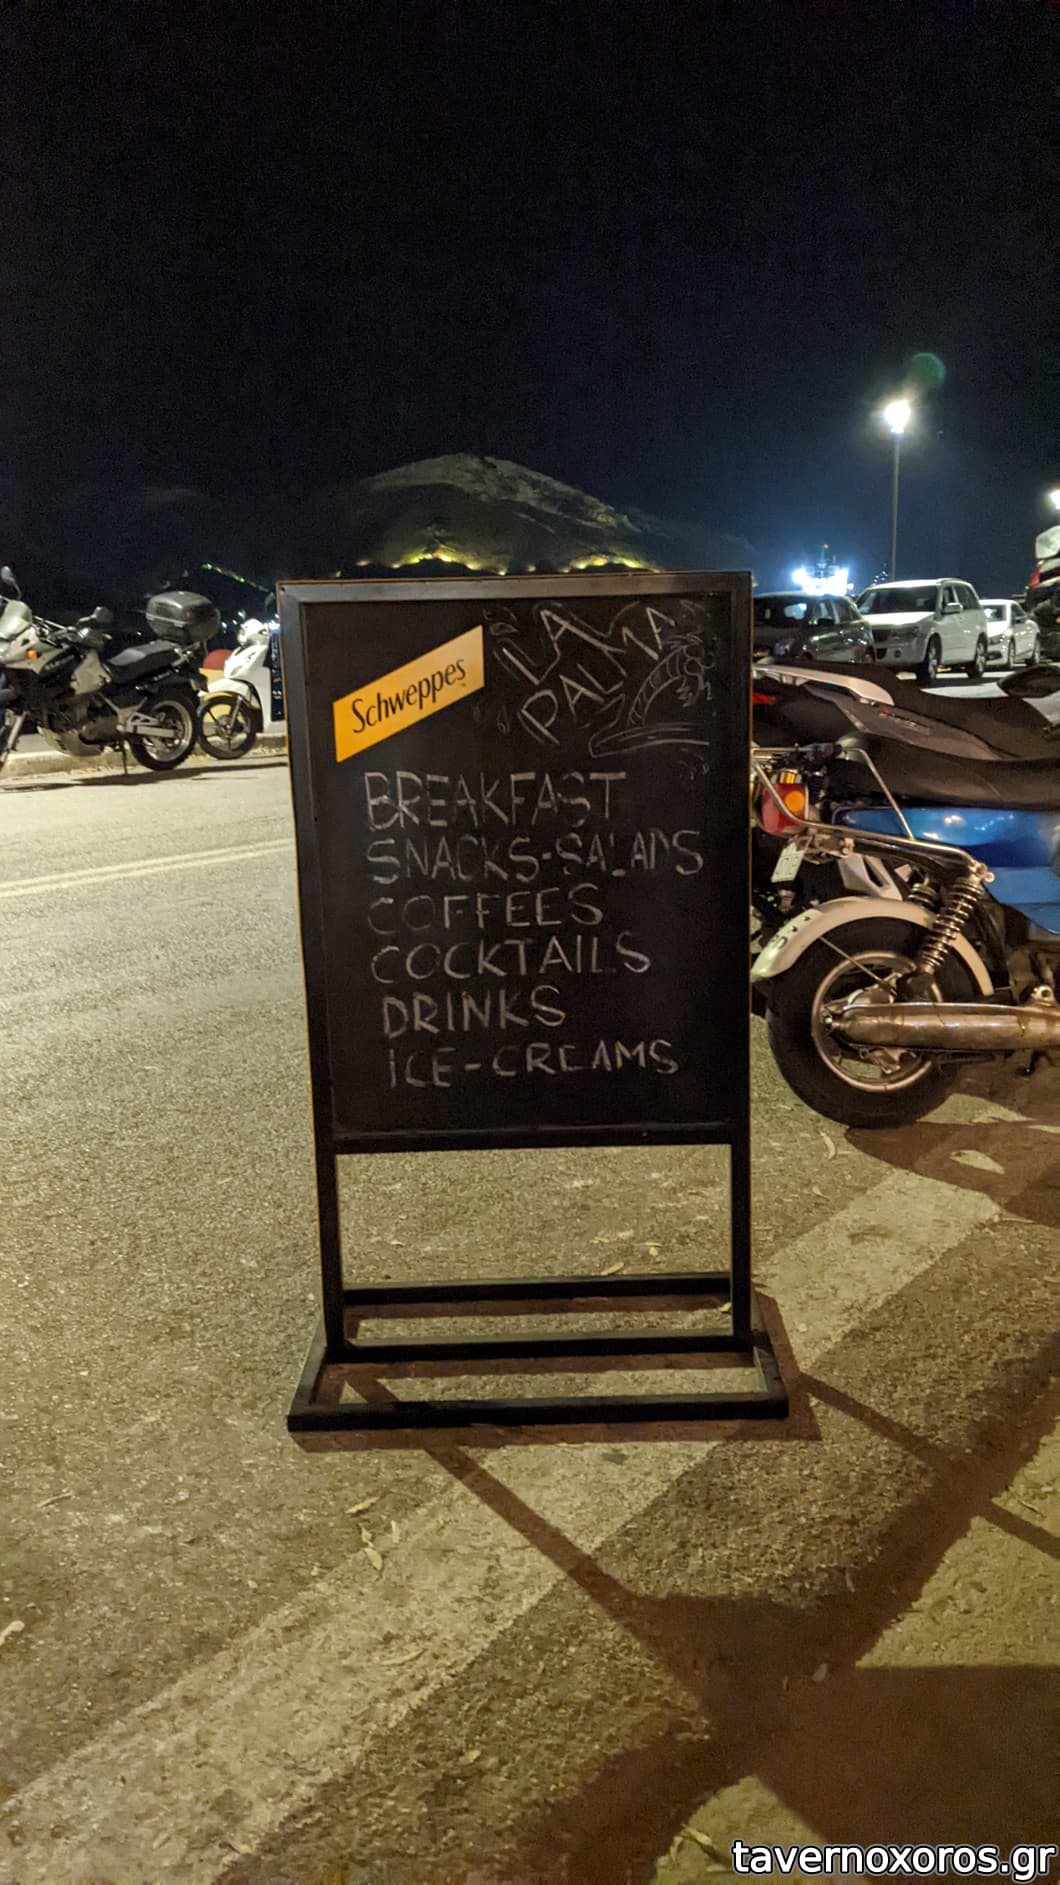 Schweppes
LA
PALMA
BREAKFAST
SNACKS-SALADS
COFFEES
COCKTAILS
DRINKS
ICE-CREAMS
tavernoxoros.gr